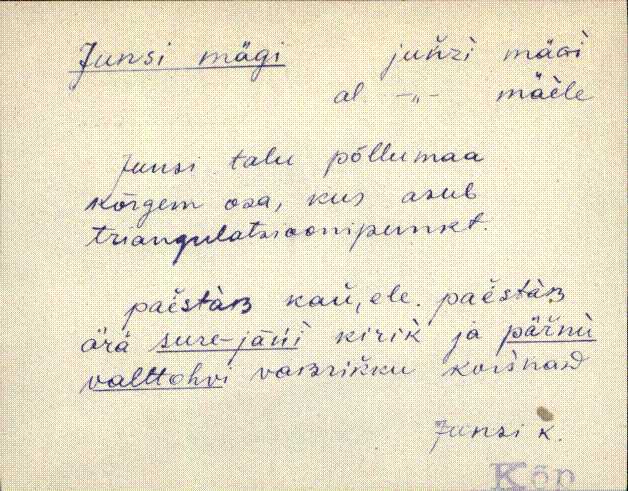 Junsi mägi juǹ̆zi mäGi
al. -„- mäèle
Junsi talu põllumaa
kõrgem osa, kus asub
triangulatsioonipunkt.
paèstàʙ kaŭ, ele. paèstàʙ
ärä sure-jāńi kiriḱ ja päŕnù
valttohvi vaʙrikku korsnad
Junsi k.
Kõp